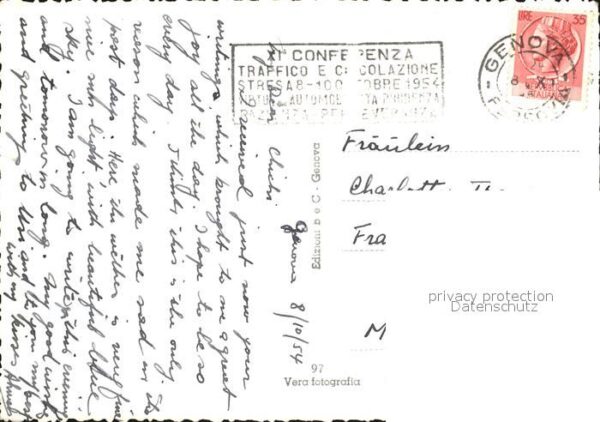 XIª CONFERENZA
TRAFFICO E CIRCOLAZIONE
STRESA 8-10 OTTOBRE 1954
GENOVA
LIRE 35
Genova 8/10/54
My dear
I received just now your
writings which brought to me a great
joy all the day. I hope to be so
every day. I think this is the only
reason which made me sad in the
past days. Here, the wether is very fine
nice sun light with beautiful blue
sky. I am going to write this evening
and tomorrow in long. My good wishes
and greetings to and to you my
with my kisses
Fräulein
Fra
M
Edizioni B e C - Genova
97
Vera fotografia
privacy protection
Datenschutz